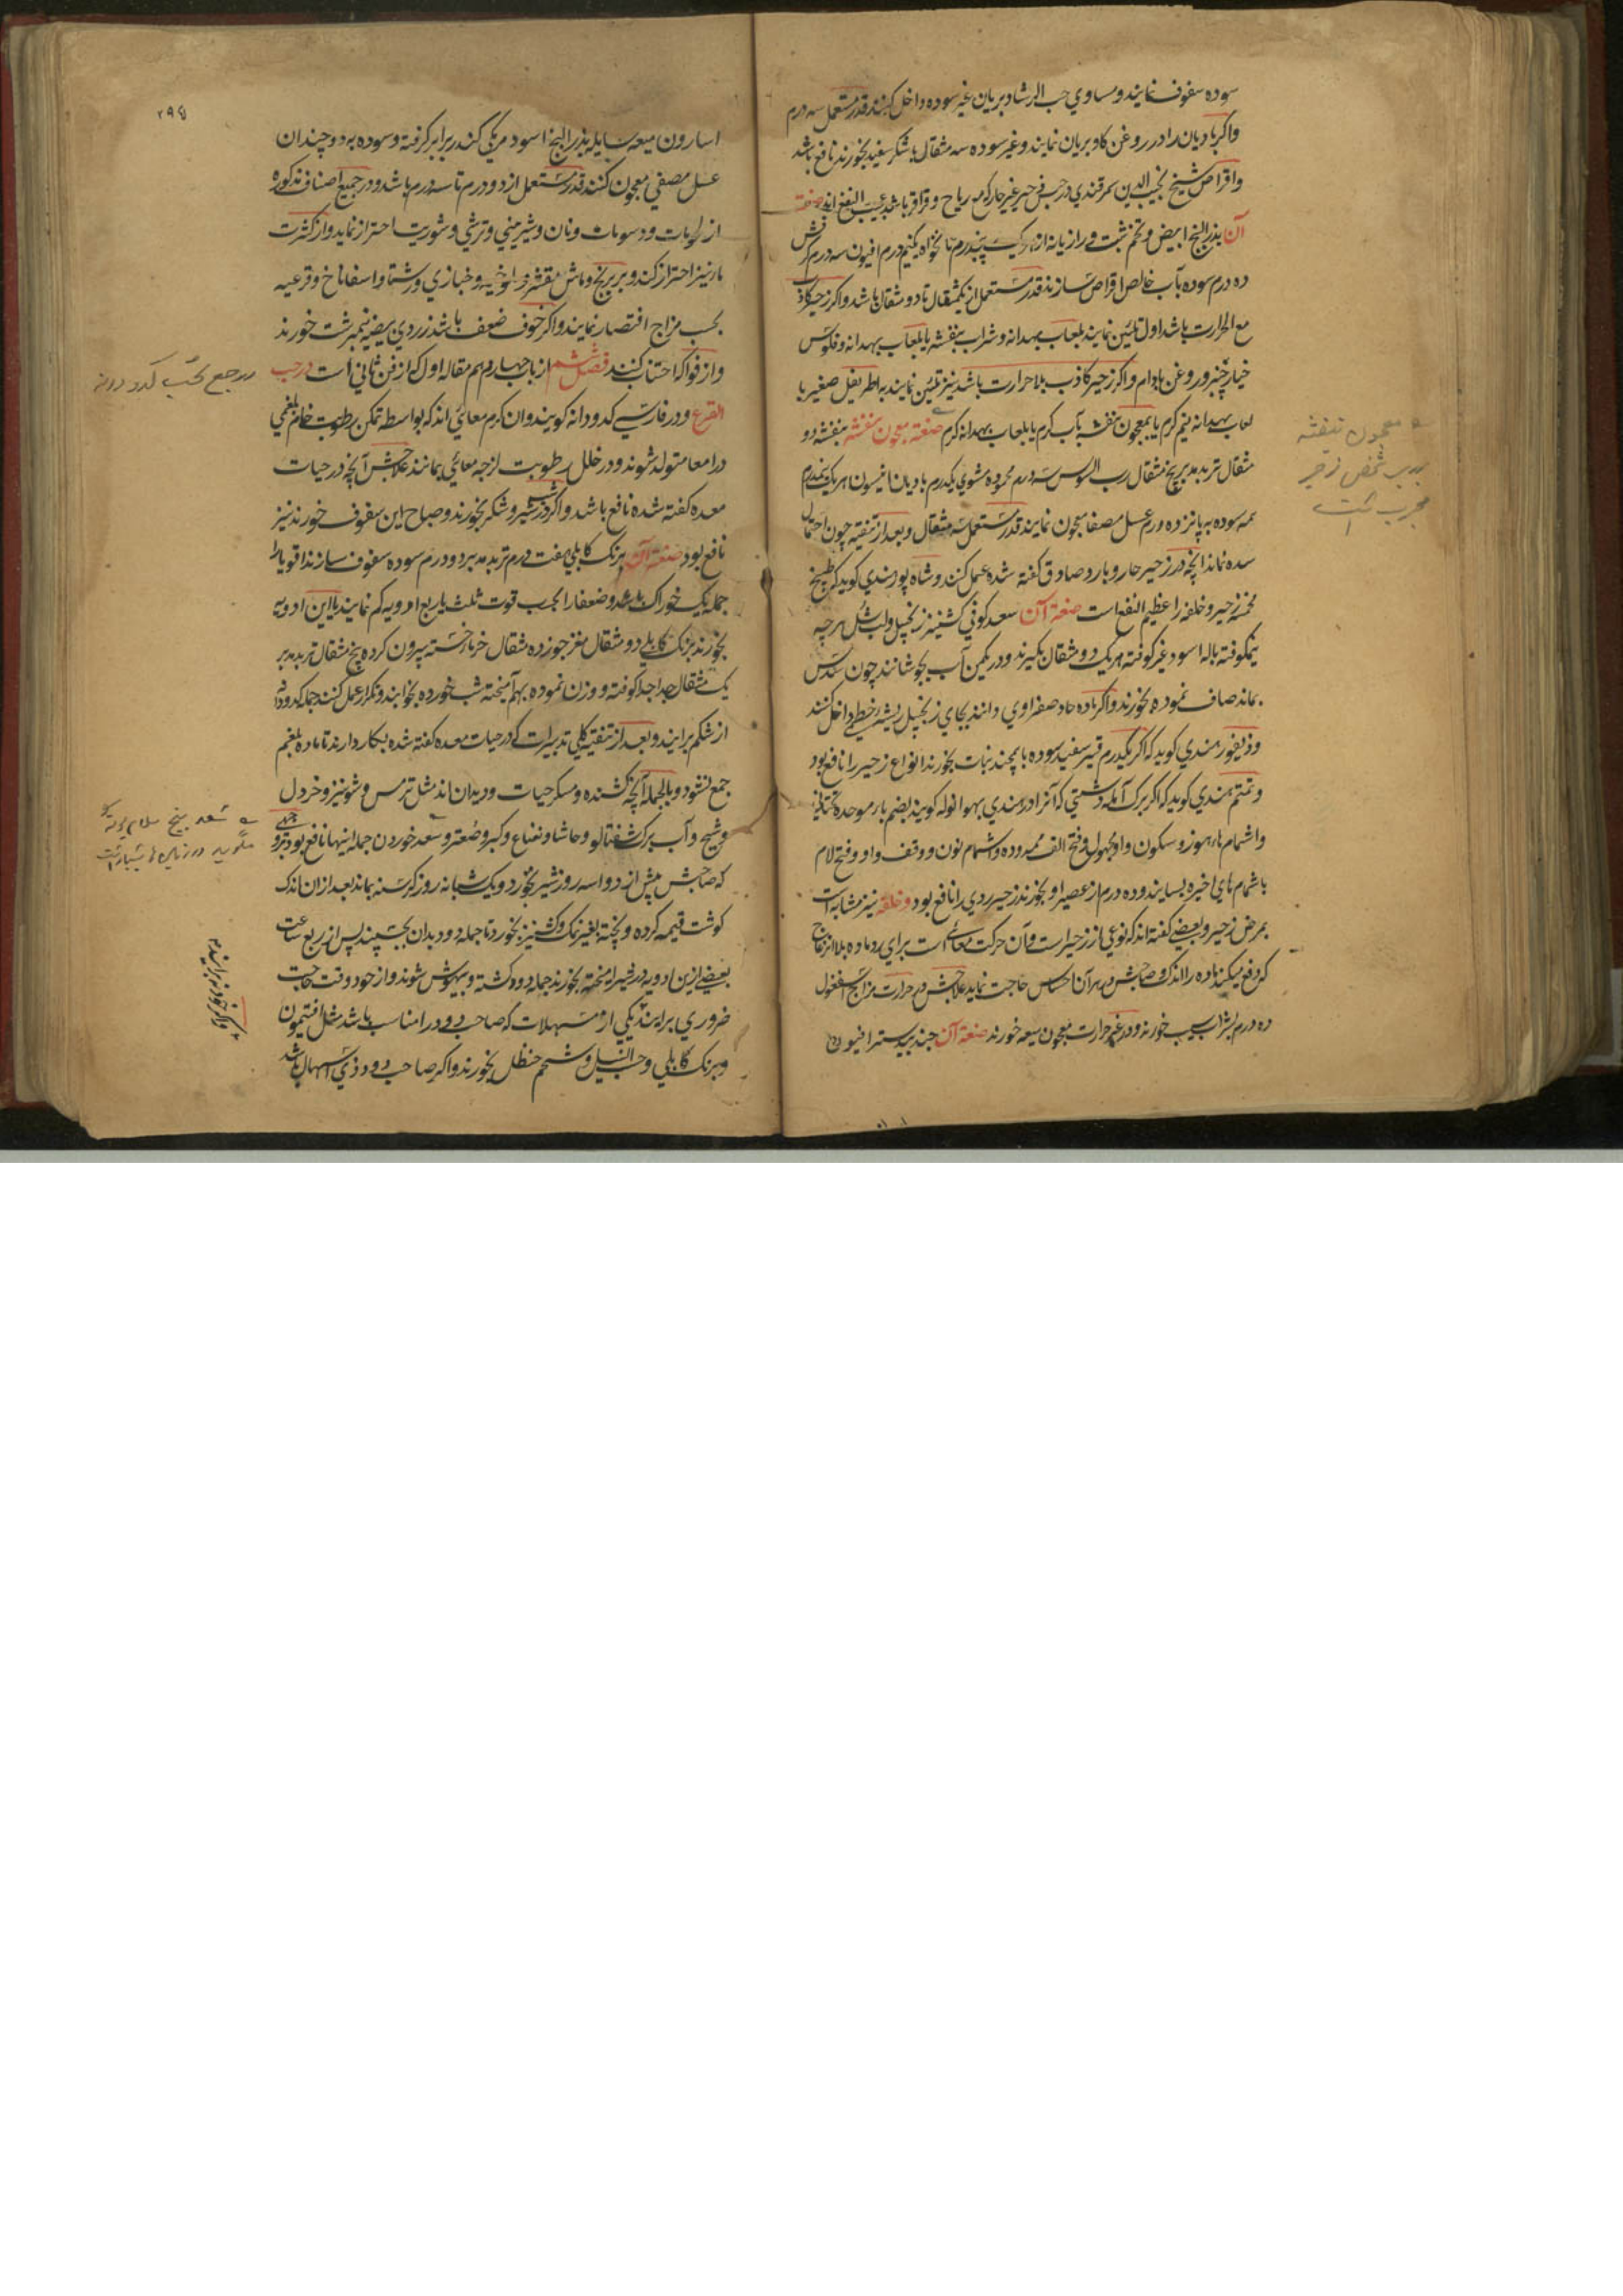 سوده سفوف نمایند و مساوی حب الرشاد بریان غیر سوده داخل کنند قدر مستعمل سه درم
واکر بادیان را در روغن کاو بریان نمایند و غیر سوده سه مثقال با شکر سفید بخورند نافع باشد
واقراص شیخ نجیب الدین سمرقندی در زحیر غیر حار که مع ریاح و قراقر باشد عجیب النفع اند صفت
آن بذر البنج ابیض و تخم شبت و رازیانه از هر یک پنجدرم نانخواه یکنیم درم افیون سه درم کرفش
ده درم سوده بآب خالص اقراص سازند قدر مستعمل از یکمثقال تا دو مثقال باشد واکر زحیر کاذب
مع الحرارت باشد اول تلئین نمایند بلعاب بهدانه و شراب بنفشه یا بلعاب بهدانه و فلوس
خیارچنبر و روغن بادام واکر زحیر کاذب بلا حرارت باشد نیز تلئین نمایند به اطریفل صغیر با
لعاب بهدانه نیم کرم یا بمعجون بنفشه بآب کرم یا بلعاب بهدانه کرم صنعة معجون بنفشه بنفشه دو
مثقال تربد مدبر پنج مثقال رب السوس سه درم محموده مشوی یکدرم بادیان انیسون هر یک نیمدرم
همه سوده به پانزده درم عسل مصفا معجون نمایند قدر مستعمل سه مثقال و بعد از تنقیه چون احتمال
سده نماند آنچه در زحیر حار و بارد صادق کفته شده عمل کنند و شاه پور هندی کوید که طبیخ
مخترعه زحیر و خلفه را عظیم النفع است صنعة آن سعد کوفی کشنیز زنجبیل ولب شل هر چه
نیمکوفته باله اسود غیر کوفته هر یک دو مثقال بکیرند و در یکمن آب بجوشانند چون سدس
بماند صاف نموده بخورند واکر ماده حاد صفراوی دانند بجای زنجبیل ریشه خطمی داخل کنند
و ذیغور هندی کوید که اکر یکدرم قیر سفید سوده با پنجند نبات بخورند انواع زحیر را نافع بود
و تمتم هندی کوید که اکر برک آمله دشتی که آنرا در هندی بهوانوله کویند بضم باء موحده تحتانی
واشمام هاء هوز و سکون واو مجهول و فتح الف ممدوده و اشمام نون و وقف واو و فتح لام
باشمام های اخیره بسایند و ده درم از عصیر او بخورند زحیر ردی را نافع بود و خلفه نیز مشابه است
بمرض زحیر و بعضی کفته اند که نوعی از زحیر است و آن حرکت معائی است برای رد ماده بلا انزعاج
که دفع میکند ماده را اندک و صاحبش در هر آن احساس حاجت نماید علاجش در حرارت مزاج اسفغول
ده درم بشراب سیب خورند و در غیر حرارت معجون میعه خورند صنعة آن جندبیدستر افیون
معجون بنفشه
زحیر
مجرب است
۲۹۵
اسارون میعه سایله بذر البنج اسود مر مکی کندر برابر کرفته و سوده به دو چندان
عسل مصفی معجون کنند قدر مستعمل از دو درم تا سه درم باشد و در جمیع اصناف مذکوره
از لوبیات و دسومات و نان و شیرینی و ترشی و شوریت احتراز نماید و از کثرت
مار نیز احتراز کند و بر برنج و ماش مقشر و ملوخیه و خبازی و رشتا و اسفاناخ و قرعیه
بحسب مزاج اقتصار نمایند واکر خوف ضعف باشد زردی بیضه نیمبرشت خورند
و از فواکه اجتناب کنند فصل ششم از باب چهاردهم مقاله اول که از فن ثانی است در حب
القرع و در فارسی کدودانه کویند و ان کرم معائی اند که بواسطه تمکن رطوبت خام بلغمی
در امعا متولد شوند و در خلل رطوبت لزجه معائی بمانند علاجش آنچه در حیات
معده کفته شده نافع باشد واکر در شب شیر و شکر بخورند و صباح این سفوف خورند نیز
نافع بود صنعة آن برنک کابلی هفت درم تربد مدبر دو درم سوده سفوف سازند اقویا را
جمله یک خوراک باشد و ضعفا را بحسب قوت ثلث یا ربع ادویه کم نمایند یا این ادویه
بخورند برنک کابلی دو مثقال مغز جوز ده مثقال خرما خسته بیرون کرده پنج مثقال تربد مدبر
یک مثقال جدا جدا کوفته و وزن نموده بهم آمیخته شب خورده بخوابند و مکرر عمل کنند جمله کدودانه
از شکم برایند و بعد از تنقیه کلی تدبیرات که در حیات معده کفته شده بکار دارند تا ماده بلغم
جمع نشود و بالجمله آنچه کشنده و مسکر حیات و دیدان اند مثل ترمس و شونیز و خردل
و شیح و آب برک شفتالو و حاشا و نعناع و کبر و صعتر و سعد خوردن جمله اینها نافع بود
که صاحبش پیش از دو سه روز شیر بخورد و یک شبانه روز کرسنه بماند بعد از ان اندک
کوشت قیمه کرده و پخته بغیر نمک و کشنیز بخورد تا جمله دود بدان بجسپند پس از ربع ساعت
بعضی ازین ادویه در شیر امیخته بخورند جمله دود کشته و بیهوش شوند و از خود وقت حاجت
ضروری برایند یکی از مسهلات که صاحب دود را مناسب باشد مثل افتیمون
و برنک کابلی و حب النیل و شحم حنظل بخورند واکر صاحب دود ذی اسهال باشد
واکر خود نه برایند